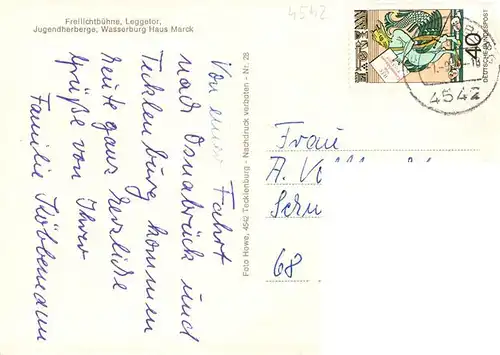 Freilichtbühne, Leggetor,
Jugendherberge, Wasserburg Haus Marck
4542
Von einer Fahrt
nach Osnabrück und
Tecklenburg kommen
heute ganz herzliche
Grüße von Ihrer
Familie
Foto Howe, 4542 Tecklenburg - Nachdruck verboten - Nr. 28
40
DEUTSCHE BUNDESPOST
4542
Frau
A.
68